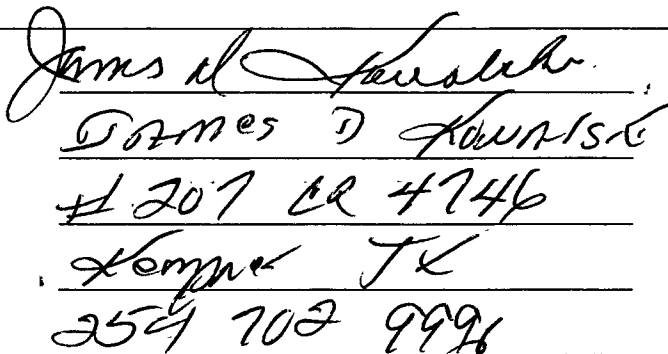 James D Kowalski
James D Kowalski
# 207 CR 4746
Kempner TX
254 702 9996